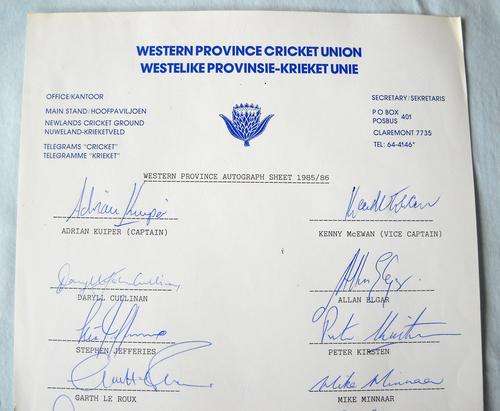 WESTERN PROVINCE CRICKET UNION
WESTELIKE PROVINSIE-KRIEKET UNIE
OFFICE/KANTOOR
MAIN STAND: HOOFPAVILJOEN
NEWLANDS CRICKET GROUND
NUWELAND-KRIEKETVELD
TELEGRAMS "CRICKET"
TELEGRAMME "KRIEKET"
SECRETARY/SEKRETARIS
P O BOX
POSBUS 401
CLAREMONT 7735
TEL: 64-4146
WESTERN PROVINCE AUTOGRAPH SHEET 1985/86
Adrian Kuiper
ADRIAN KUIPER (CAPTAIN)
KENNY McEWAN (VICE CAPTAIN)
Daryll John Cullinan
DARYLL CULLINAN
ALLAN ELGAR
STEPHEN JEFFERIES
Peter Kirsten
PETER KIRSTEN
Garth Le Roux
GARTH LE ROUX
Mike Minnaar
MIKE MINNAAR